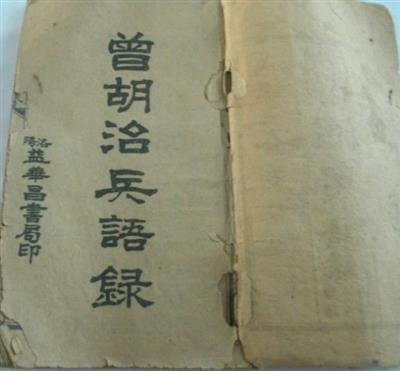 曾胡治兵語錄
洛陽益華昌書局印